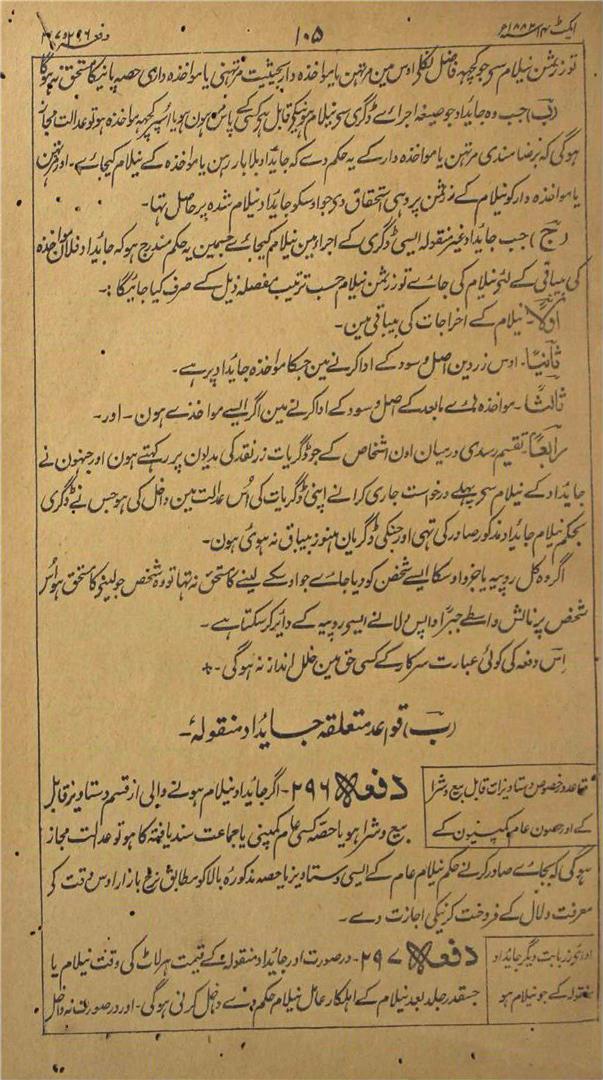 ایکٹ ۱۴ سنہ ۱۸۸۲ع
۱۰۵
دفعہ ۲۹۶ و ۲۹۷
تو زر ثمن نیلام سی جو کچھہ فاضل نکلی اوس مین مرتہن یا مواخذہ دار بحیثیت مرتہنی یا مواخذہ داری حصہ پانیکا مستحق نہوگا
(ب) جب وہ جائداد جو صیغہ اجراے ڈگری سی نیلام ہونیکی قابل ہو کسی کے پاس رہن ہو یا اسپر کچھہ مواخذہ ہو تو عدالت مجاز
ہوگی کہ برضا مندی مرتہن یا مواخذہ دار کے یہ حکم دے کہ جائداد بلا بار رہن یا مواخذہ کے نیلام کیجاے۔ اور مرتہن
یا مواخذہ دار کو نیلام کے زر ثمن پر وہی استحقاق دی جو اوسکو جائداد نیلام شدہ پر حاصل تہا۔
(ج) جب جائداد غیر منقولہ ایسی ڈگری کے اجرا مین نیلام کیجاے جسمین یہ حکم مندرج ہو کہ جائداد فلان مواخذہ
کی بیباقی کے لئی نیلام کی جاے تو زر ثمن نیلام حسب ترتیب مفصلہ ذیل کے صرف کیا جائیگا :۔
اولاً۔ نیلام کے اخراجات کی بیباقی مین۔
ثانیاً۔ اوس زر دین اصل و سود کے ادا کرنے مین جسکا مواخذہ جائداد پر ہے۔
ثالثاً۔ مواخذہ ہاے مابعد کے اصل و سود کے ادا کرنے مین اگر ایسے مواخذے ہون۔ اور۔
رابعاً۔ تقسیم رسدی درمیان اون اشخاص کے جو ڈگریات زر نقد کی مدیون پر رکہتے ہون اور جنہون نے
جائداد کے نیلام سی پہلے درخواست جاری کرانے اپنی ڈگریات کی اُس عدالت مین داخل کی ہو جس نے ڈگری
بحکم نیلام جائداد مذکور صادر کی تہی اور جنکی ڈگریان ہنوز بیباق نہ ہوئی ہون۔
اگر وہ کل روپیہ یا جزو اوسکا ایسے شخص کو دیا جاے جو اوسکے لینے کا مستحق نہ تہا تو وہ شخص جو لینی کا مستحق ہو اُس
شخص پر نالش واسطے جبراً واپس دلانے ایسی روپیہ کے دایر کر سکتا ہے۔
اِس دفعہ کی کوئی عبارت سرکار کے کسی حق مین خلل انداز نہ ہوگی۔
(ب) قواعد متعلقہ جایداد منقولہ۔
قاعدہ بخصوص دستاویزات قابل بیع و شرا
کے اور حصون عام کمپنیون کے
دفعہ ۲۹۶۔ اگر جائداد نیلام ہونے والی از قسم دستاویز قابل
بیع و شرا ہو یا حصہ کسی عام کمپنی یا جماعت سند یافتہ کا ہو تو عدالت مجاز
ہوگی کہ بجاے صادر کرنے حکم نیلام عام کے ایسی دستاویز یا حصہ مذکورہ بالا کو مطابق نرخ بازار اوس وقت کی
معرفت دلال کے فروخت کرنیکی اجازت دے۔
اداے زر بابت دیگر جائداد
منقولہ کے جو نیلام ہو
دفعہ ۲۹۷۔ درصورت اور جائداد منقولہ کے قیمت ہر لاٹ کی وقت نیلام یا
جسقدر جلد بعد نیلام کے اہلکار عامل نیلام حکم دے داخل کرنی ہوگی۔ اور درصورت نہ داخل